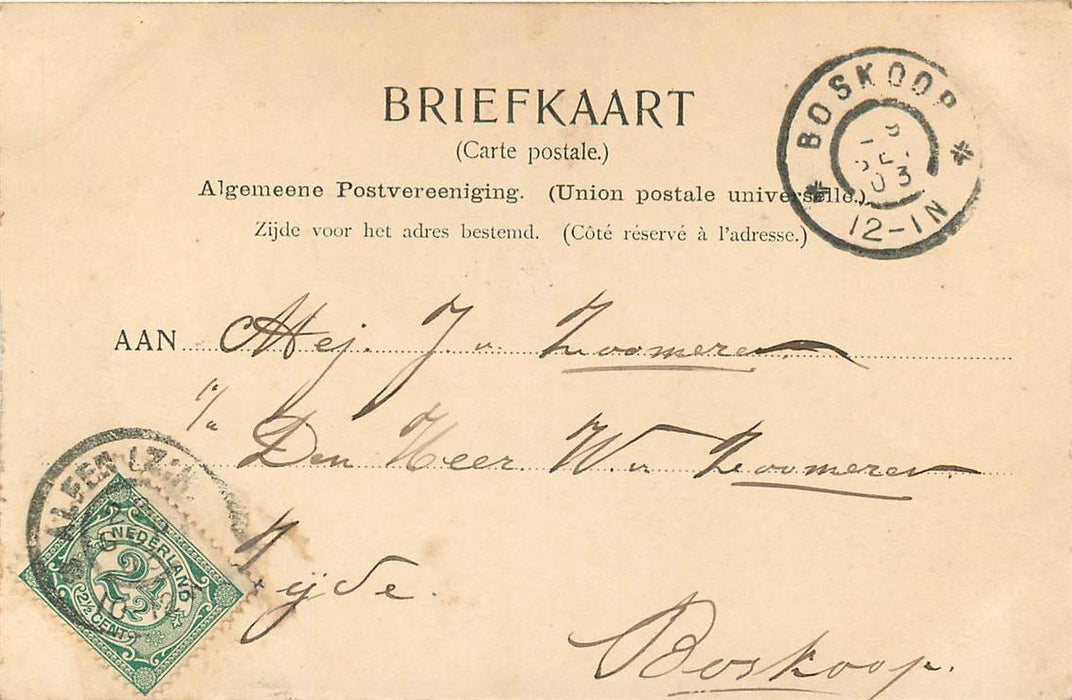 BRIEFKAART
(Carte postale.)
Algemeene Postvereeniging. (Union postale universelle.)
Zijde voor het adres bestemd. (Côté réservé à l'adresse.)
BOSKOOP
03
12-1N
AAN Mej. J v. Zoomeren
Den Heer W. v Zoomeren
Zijde.
Boskoop.
NEDERLAND
2½
2½ CENT